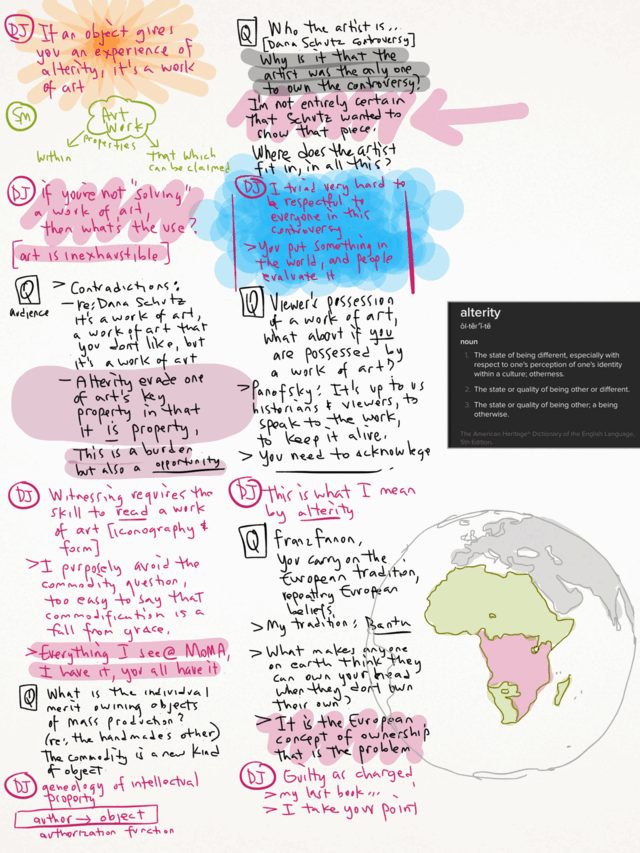 DJ If an object gives
you an experience of
alterity, it's a work
of art
SM
Art
Work
properties
within
that which
can be claimed
DJ if you're not "solving"
a work of art,
then what's the use?
[art is inexhaustible]
Q audience
> Contradictions:
- re: Dana Schutz
it's a work of art,
a work of art that
you don't like, but
it's a work of art
- Alterity evade one
of art's key
property in that
it is property,
This is a burden
but also a opportunity
DJ Witnessing requires the
skill to read a work
of art [iconography &
form]
> I purposely avoid the
commodity question,
too easy to say that
commodification is a
fall from grace.
> Everything I see @ MoMA,
I have it, you all have it
Q What is the individual
merit owning objects
of mass production?
(re:, the handmades other)
The commodity is a new kind
of object
DJ geneology of intellectual
property
author → object
authorization function
Q Who the artist is...
[Dana Schutz controversy]
Why is it that the
artist was the only one
to own the controversy?
I'm not entirely certain
that Schutz wanted to
show that piece.
Where does the artist
fit in, in all this?
DJ I tried very hard to
be respectful to
everyone in this
controversy
> You put something in
the world, and people
evaluate it
Q Viewer's possession
of a work of art,
what about if you
are possessed by
a work of art?
> Panofsky: It's up to us
historians & viewers, to
speak to the work,
to keep it alive.
> You need to acknowledge
DJ This is what I mean
by alterity
Q Franz Fanon,
You carry on the
European tradition,
repeating European
beliefs.
> My tradition: Bantu
> What makes anyone
on earth think they
can own your head
when they don't own
their own?
> It is the European
concept of ownership
that is the problem
DJ Guilty as charged
> my last book...
> I take your point
alterity
ôl-tĕr′ĭ-tē
noun
1. The state of being different, especially with
respect to one's perception of one's identity
within a culture; otherness.
2. The state or quality of being other or different.
3. The state or quality of being other; a being
otherwise.
The American Heritage® Dictionary of the English Language,
5th Edition.